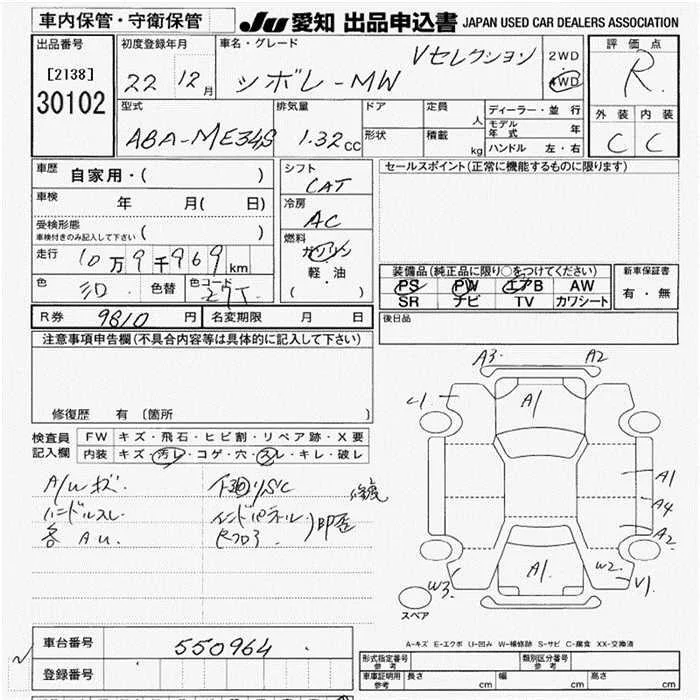 車内保管・守衛保管
JU 愛知 出品申込書 JAPAN USED CAR DEALERS ASSOCIATION
出品番号
[2138]
30102
初度登録年月
22 12月
車名・グレード
Vセレクション
シボレ-MW
2WD
4WD
評価点
R
外装 内装
C C
型式
ABA-ME34S
排気量
1.32cc
ドア
形状
定員 人
積載 kg
ディーラー・並 行
モデル年式 年
ハンドル 左・右
車歴 自家用・( )
車検 年 月( 日)
受検形態
車検付きのみ記入して下さい ( )
走行 10万9千969km
色 色替 色コード
シフト
CAT
冷房
AC
燃料
ガソリン
軽・油
( )
セールスポイント(正常に機能するものに限ります)
装備品(純正品に限り○をつけてください)
PS PW エアB AW
SR ナビ TV カワシート
新車保証書
有・無
後日品
R券 9810円 名変期限 月 日
注意事項申告欄(不具合内容等は具体的に記入して下さい)
修復歴 有 〔箇所 〕
検査員記入欄
FW キズ・飛石・ヒビ割・リペア跡・X要
内装 キズ・汚レ・コゲ・穴・スレ・キレ・破レ
A/Uキズ
ハンドルスレ
各AU
A3 A2
A1
A1
A4
A2
A1
W2
W3
V1
スペア
A-キズ E-エクボ U-凹み W-補修跡 S-サビ C-腐食 XX-交換済
車台番号 550964
登録番号
形式指定番号 参考
類別区分番号 参考
車庫証明用 参考 長さ cm 幅 cm 高さ cm